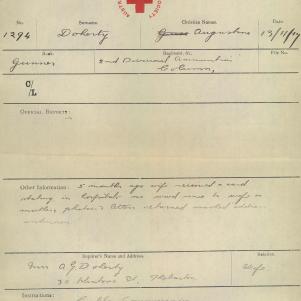 SOCIETY
No.
Surname.
Christian Names.
Date
1294
Doherty
Augustine
13/11/17
Rank.
Regiment, &c.
File No.
Gunner
2nd Divisional Ammunition
Column
C/L
OFFICIAL REPORTS:
Other Information: 5 months ago wife received a card
stating in hospital no word since to wife or
mother returned marked
Inquirer's Name and Address.
Relation.
Mrs A. G. Doherty
Wife
30 St, Hobart